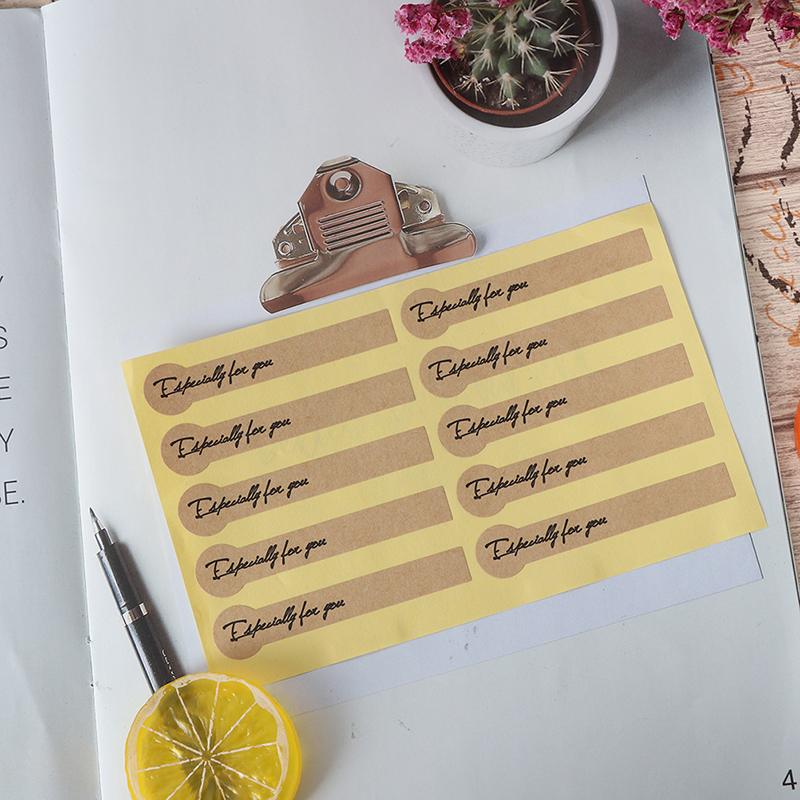 Y
S
E
Y
SE.
Especially for you
Especially for you
Especially for you
Especially for you
Especially for you
Especially for you
Especially for you
Especially for you
Especially for you
Especially for you
4